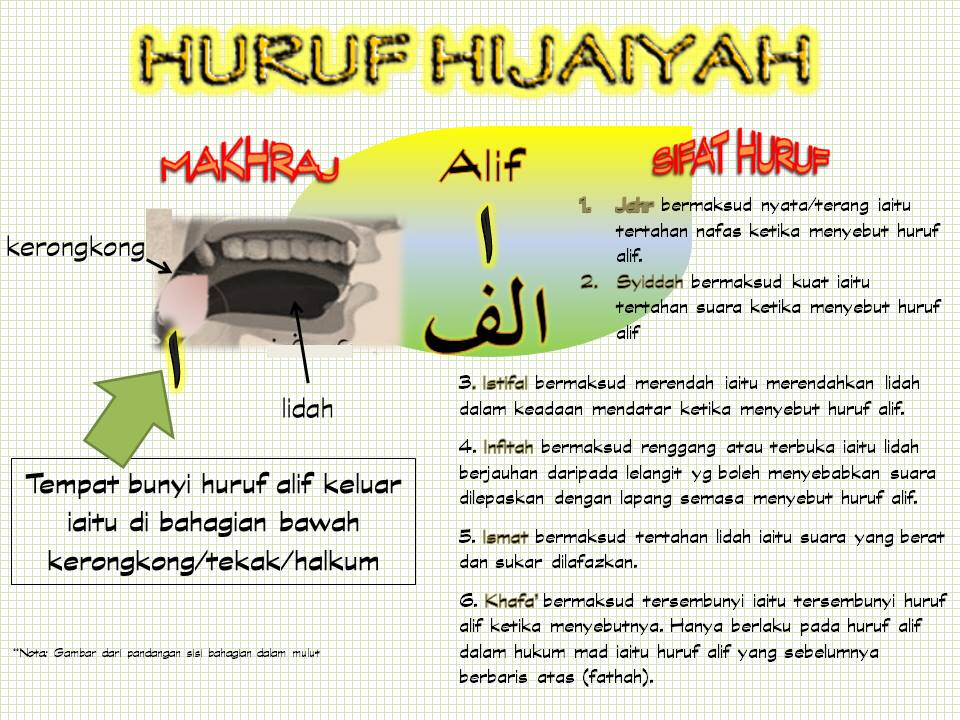 HURUF HIJAIYAH
MAKHRAJ
Alif
SIFAT HURUF
ا
الف
kerongkong
ا
lidah
Tempat bunyi huruf alif keluar
iaitu di bahagian bawah
kerongkong/tekak/halkum
1. Jahr bermaksud nyata/terang iaitu
tertahan nafas ketika menyebut huruf
alif.
2. Syiddah bermaksud kuat iaitu
tertahan suara ketika menyebut huruf
alif
3. Istifal bermaksud merendah iaitu merendahkan lidah
dalam keadaan mendatar ketika menyebut huruf alif.
4. Infitah bermaksud renggang atau terbuka iaitu lidah
berjauhan daripada lelangit yg boleh menyebabkan suara
dilepaskan dengan lapang semasa menyebut huruf alif.
5. Ismat bermaksud tertahan lidah iaitu suara yang berat
dan sukar dilafazkan.
6. Khafa' bermaksud tersembunyi iaitu tersembunyi huruf
alif ketika menyebutnya. Hanya berlaku pada huruf alif
dalam hukum mad iaitu huruf alif yang sebelumnya
berbaris atas (fathah).
*Nota: Gambar dari pandangan sisi bahagian dalam mulut